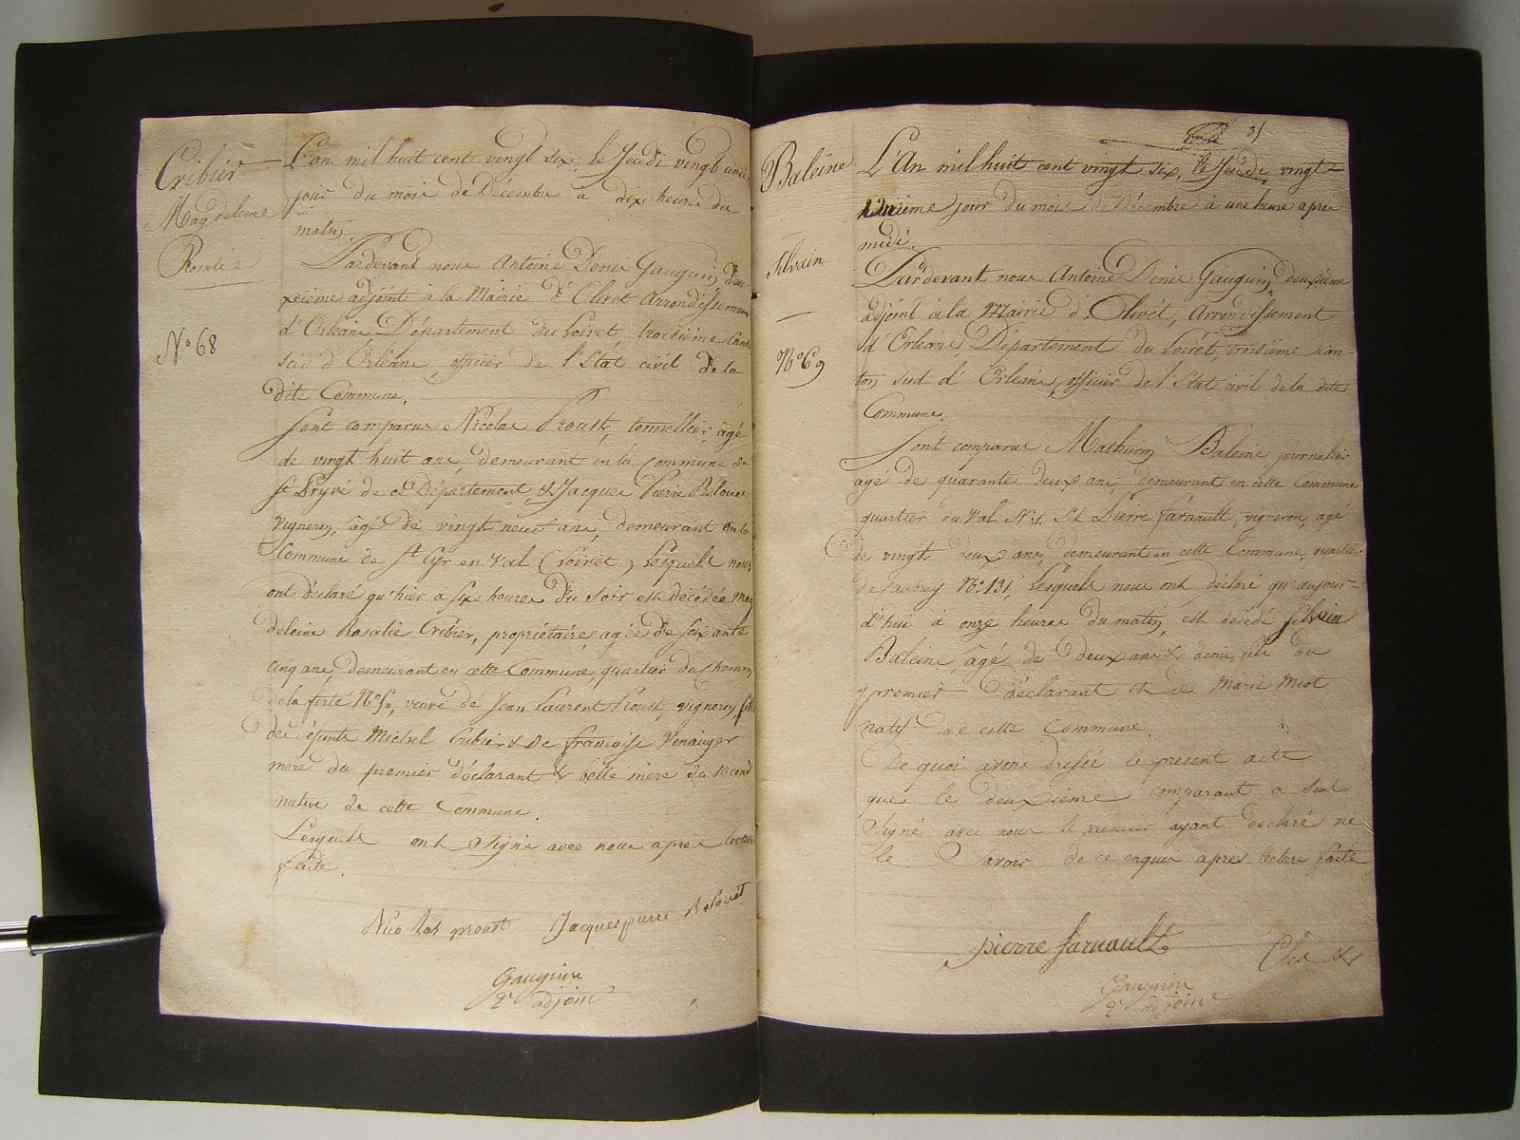 Cribier
Magdeleine
Rosalie
N° 68
L'an mil huit cent vingt six, le Jeudi vingt unie
jour du mois de Décembre à dix heures du
matin.
Pardevant nous Antoine Denis Gauguin, deu-
xieme adjoint à la Mairie d'Olivet Arrondissement
d'Orléans, Département du Loiret, troisième canton
sud d'Orléans, officier de l'état civil de la
dite Commune.
Sont comparus Nicolas Proust, tonnellier, âgé
de vingt huit ans, demeurant en la commune de
St Pryvé de ce Département, & Jacques Pierre Belouet
vigneron, âgé de vingt neuf ans, demeurant en la
Commune de St Cyr en Val (Loiret), lesquels nous
ont déclaré qu'hier à six heures du soir est décédée Mag
deleine Rosalie Cribier, propriétaire, agée de soixante
cinq ans, demeurant en cette Commune, quartier du
de la ferté N° veuve de Jean Laurent Proust, vigneron, fille
des défunts Michel Cribier & de françoise
mere du premier déclarant & belle mère du second
native de cette Commune.
Lesquels ont signé avec nous apres lecture
faite.
Nicolas proust Jacques pierre Belouet
Gauguin
2e adjoint
31
Baleine
Silvain
N° 69
L'An mil huit cent vingt six, le Jeudi, vingt
unieme jour du mois de Décembre à une heure apres
midi.
Pardevant nous Antoine Denis Gauguin, deuxième
adjoint à la Mairie d'Olivet, Arrondissement
d'Orléans, Département du Loiret, troisième can-
ton sud d'Orléans, officier de l'état civil de la dite
Commune.
Sont comparus Mathurin Baleine journalier
agé de quarante deux ans, demeurant en cette Commune
quartier du Val N° & Pierre farnault, vigneron, agé
de vingt deux ans, demeurant en cette Commune, quartier
N° 131, lesquels nous ont déclaré qu'aujour-
d'hui à onze heures du matin, est décédé Silvain
Baleine, âgé de deux ans & demi, fils du
premier déclarant et de Marie Miot
natif de cette Commune.
De quoi avons dressé le present acte
que le deuxième comparant a seul
Signé avec nous le premier ayant déclaré ne
le savoir de ce enquis apres lecture faite
pierre farnault
Gauguin
2e adjoint